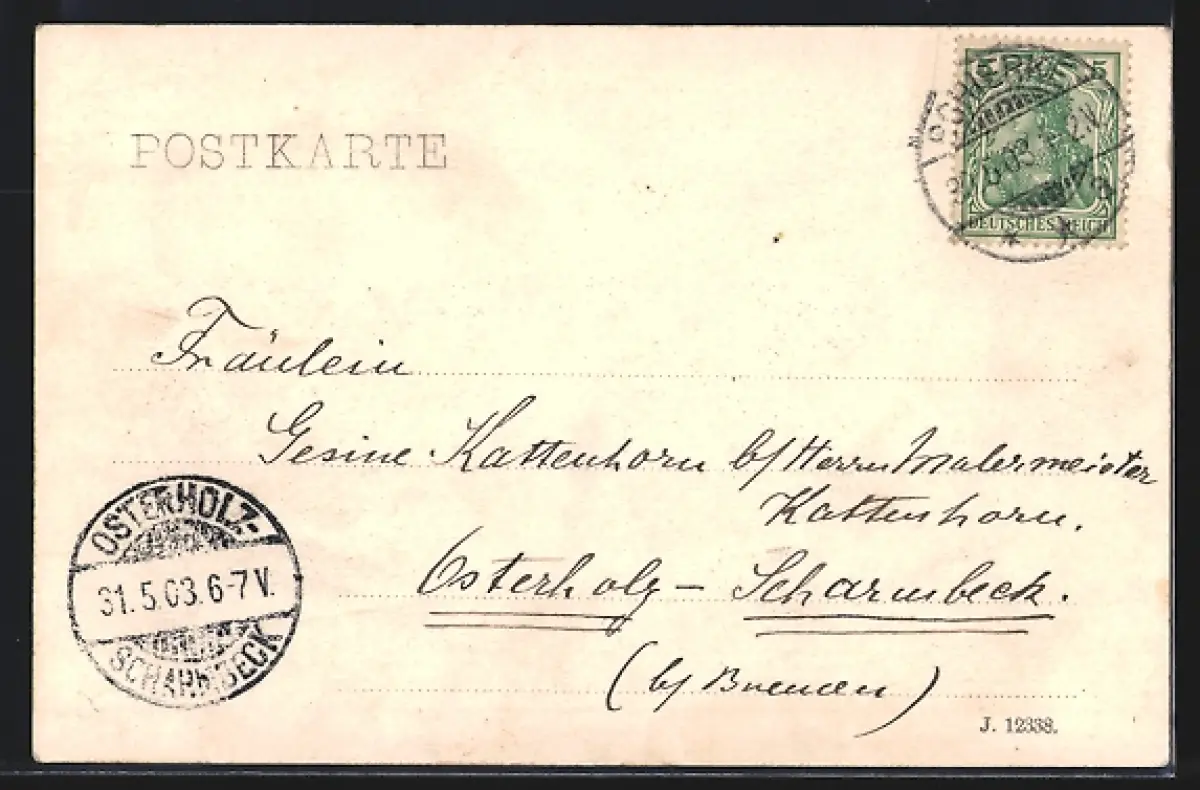 POSTKARTE
SCHIERKE
5
DEUTSCHES REICH
Fräulein
Gesine Kattenhorn b/ Herrn Malermeister
Kattenhorn.
Osterholz - Scharmbeck.
(b/ Bremen)
OSTERHOLZ-
31.5.03.6-7V.
SCHARMBECK
J. 12338.